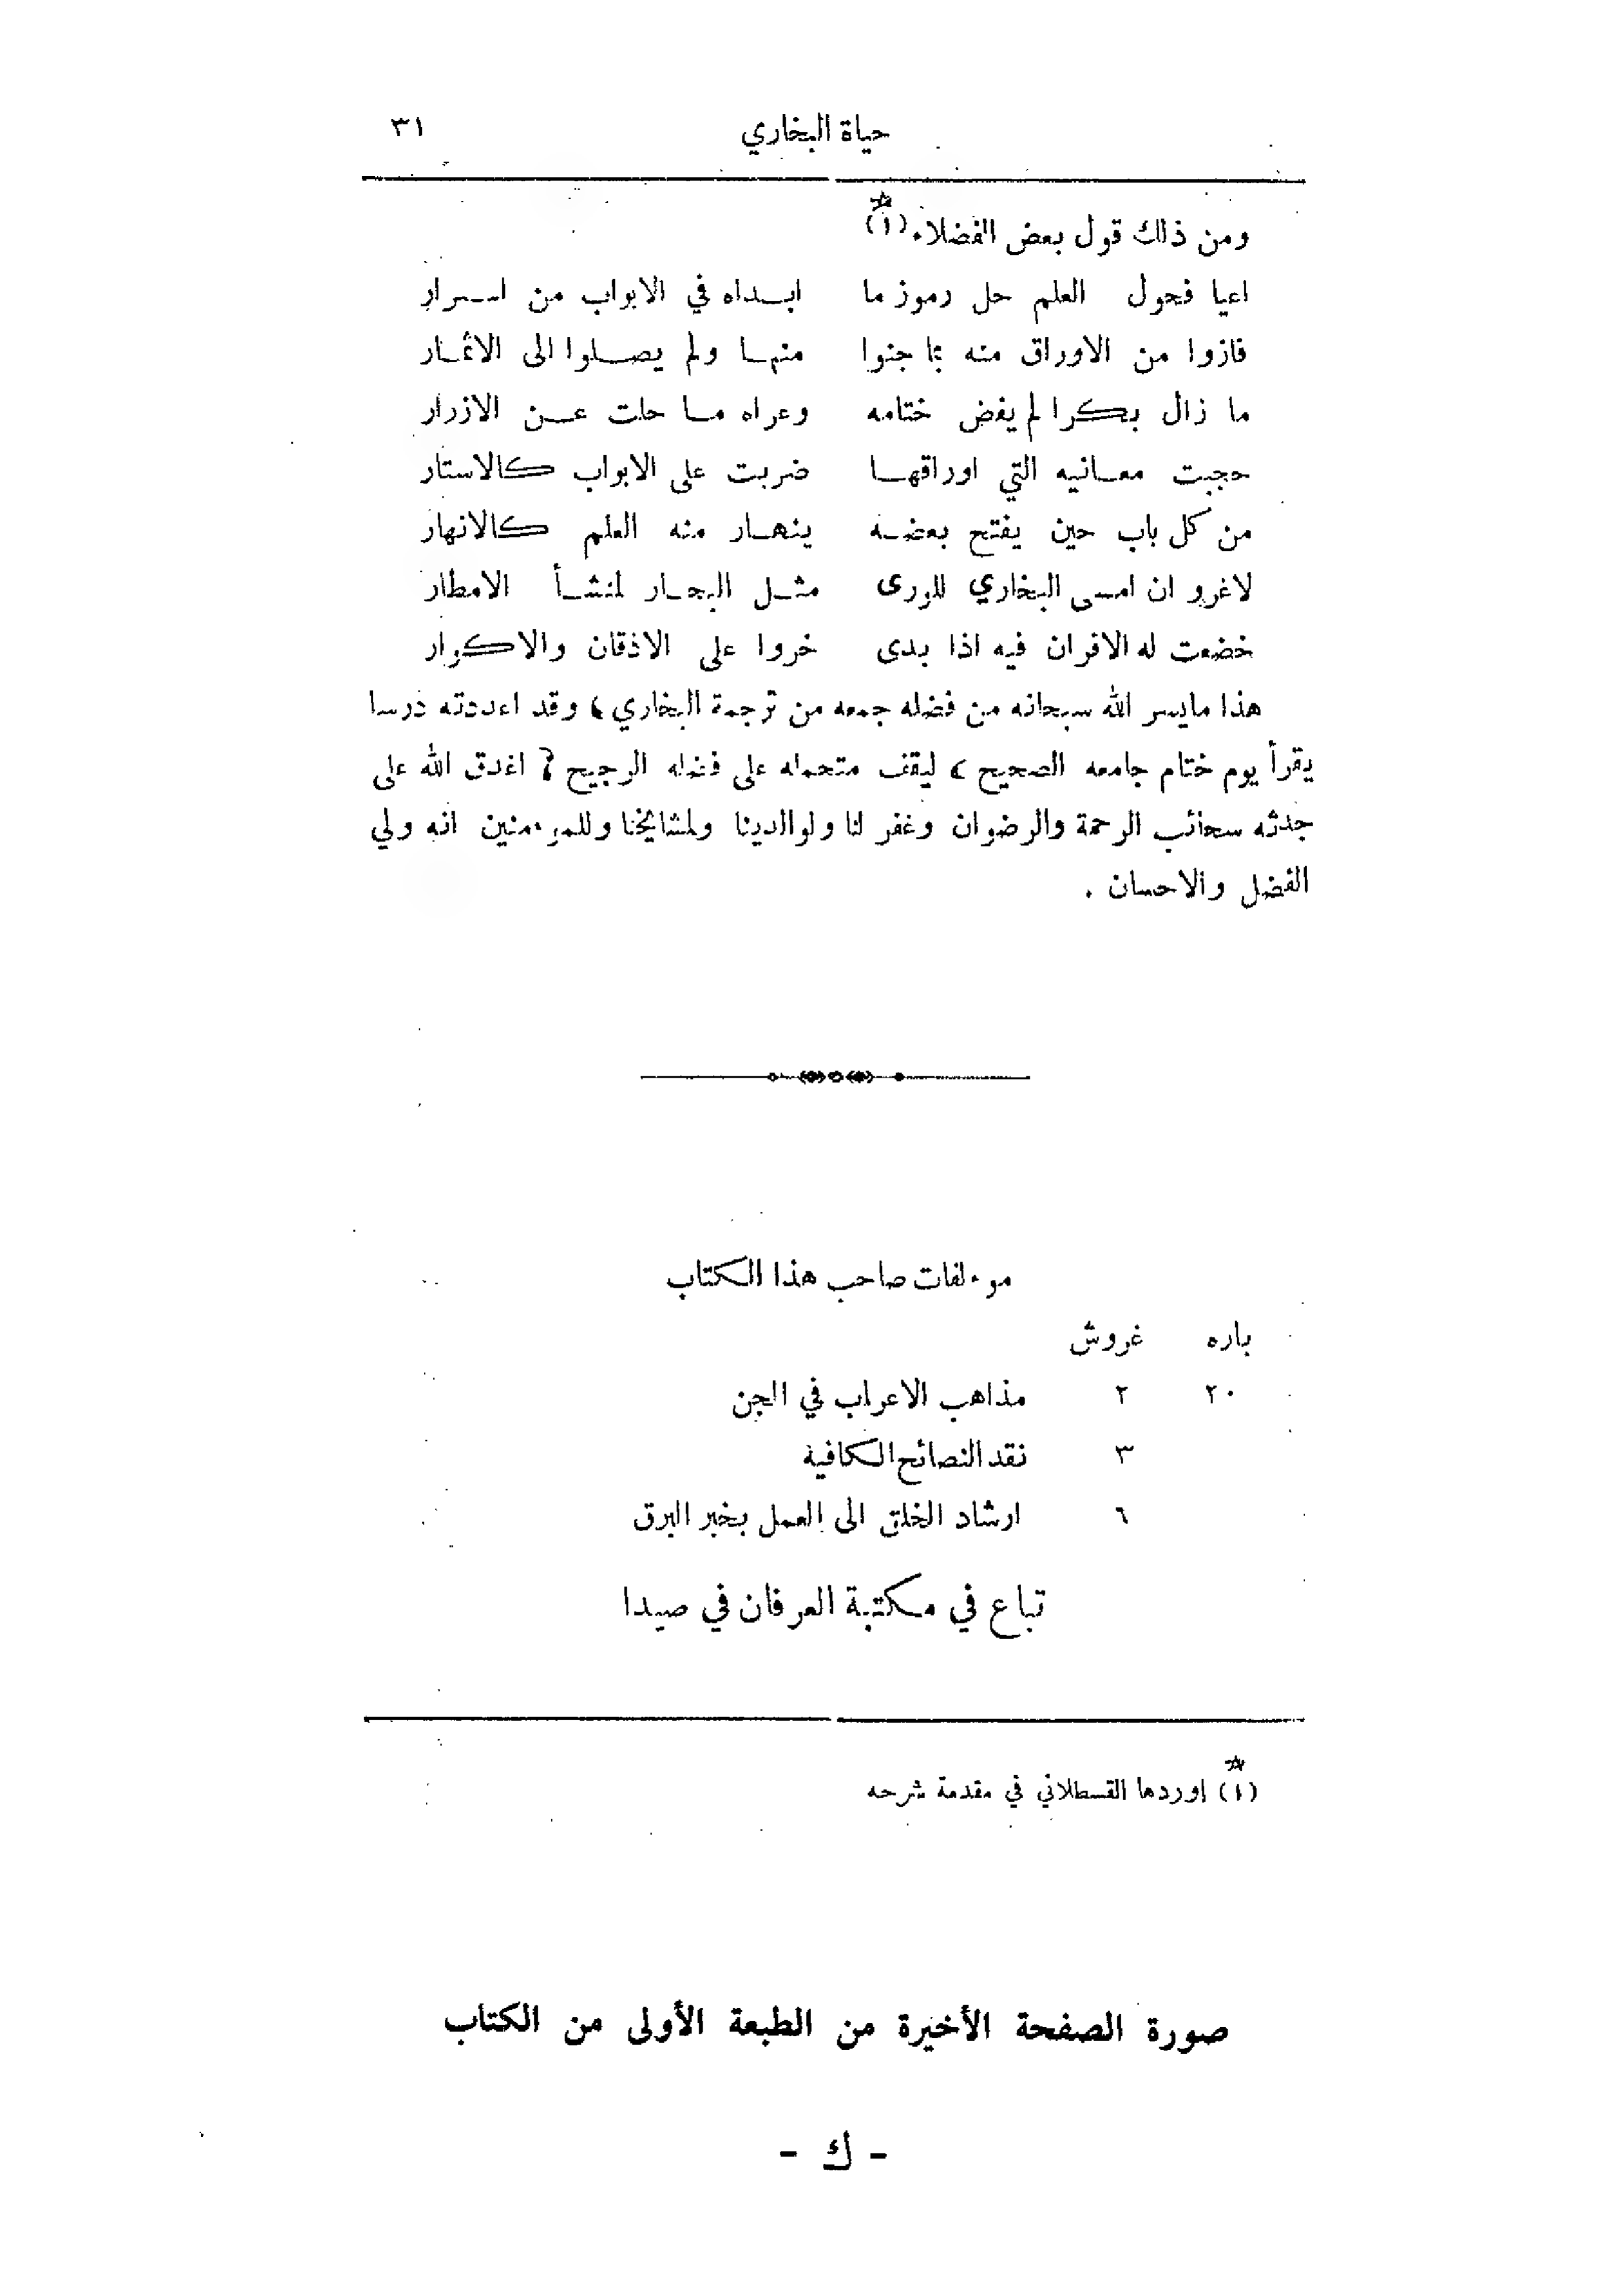 حياة البخاري ٣١
ومن ذلك قول بعض الفضلاء (١)
اعيا فحول العلم حل رموز ما ابداه في الابواب من اسرار
فازوا من الاوراق منه بما جنوا منها ولم يصلوا الى الاثمار
ما زال بكرا لم يفض ختامه وعراه ما حلت عن الازرار
حجبت معانيه التي اوراقها ضربت على الابواب كالاستار
من كل باب حين يفتح بعضه ينهار منه العلم كالانهار
لاغرو ان امسى البخاري للورى مثل البحار لمنشأ الامطار
خضعت له الاقران فيه اذا بدى خروا على الاذقان والاكوار
هذا مايسر الله سبحانه من فضله جمعه من ترجمة البخاري، وقد اعددته درسا
يقرأ يوم ختام جامعه الصحيح، ليقف متحمله على فضله الرجيح، اغدق الله على
جدثه سحائب الرحمة والرضوان وغفر لنا ولوالدينا ولمشايخنا وللمؤمنين انه ولي
الفضل والاحسان .
مؤلفات صاحب هذا الكتاب
باره غروش
٢٠ ٢ مذاهب الاعراب في الجن
٣ نقد النصائح الكافية
٦ ارشاد الخلق الى العمل بخبر البرق
تباع في مكتبة العرفان في صيدا
(١) اوردها القسطلاني في مقدمة شرحه
صورة الصفحة الأخيرة من الطبعة الأولى من الكتاب
- ك -